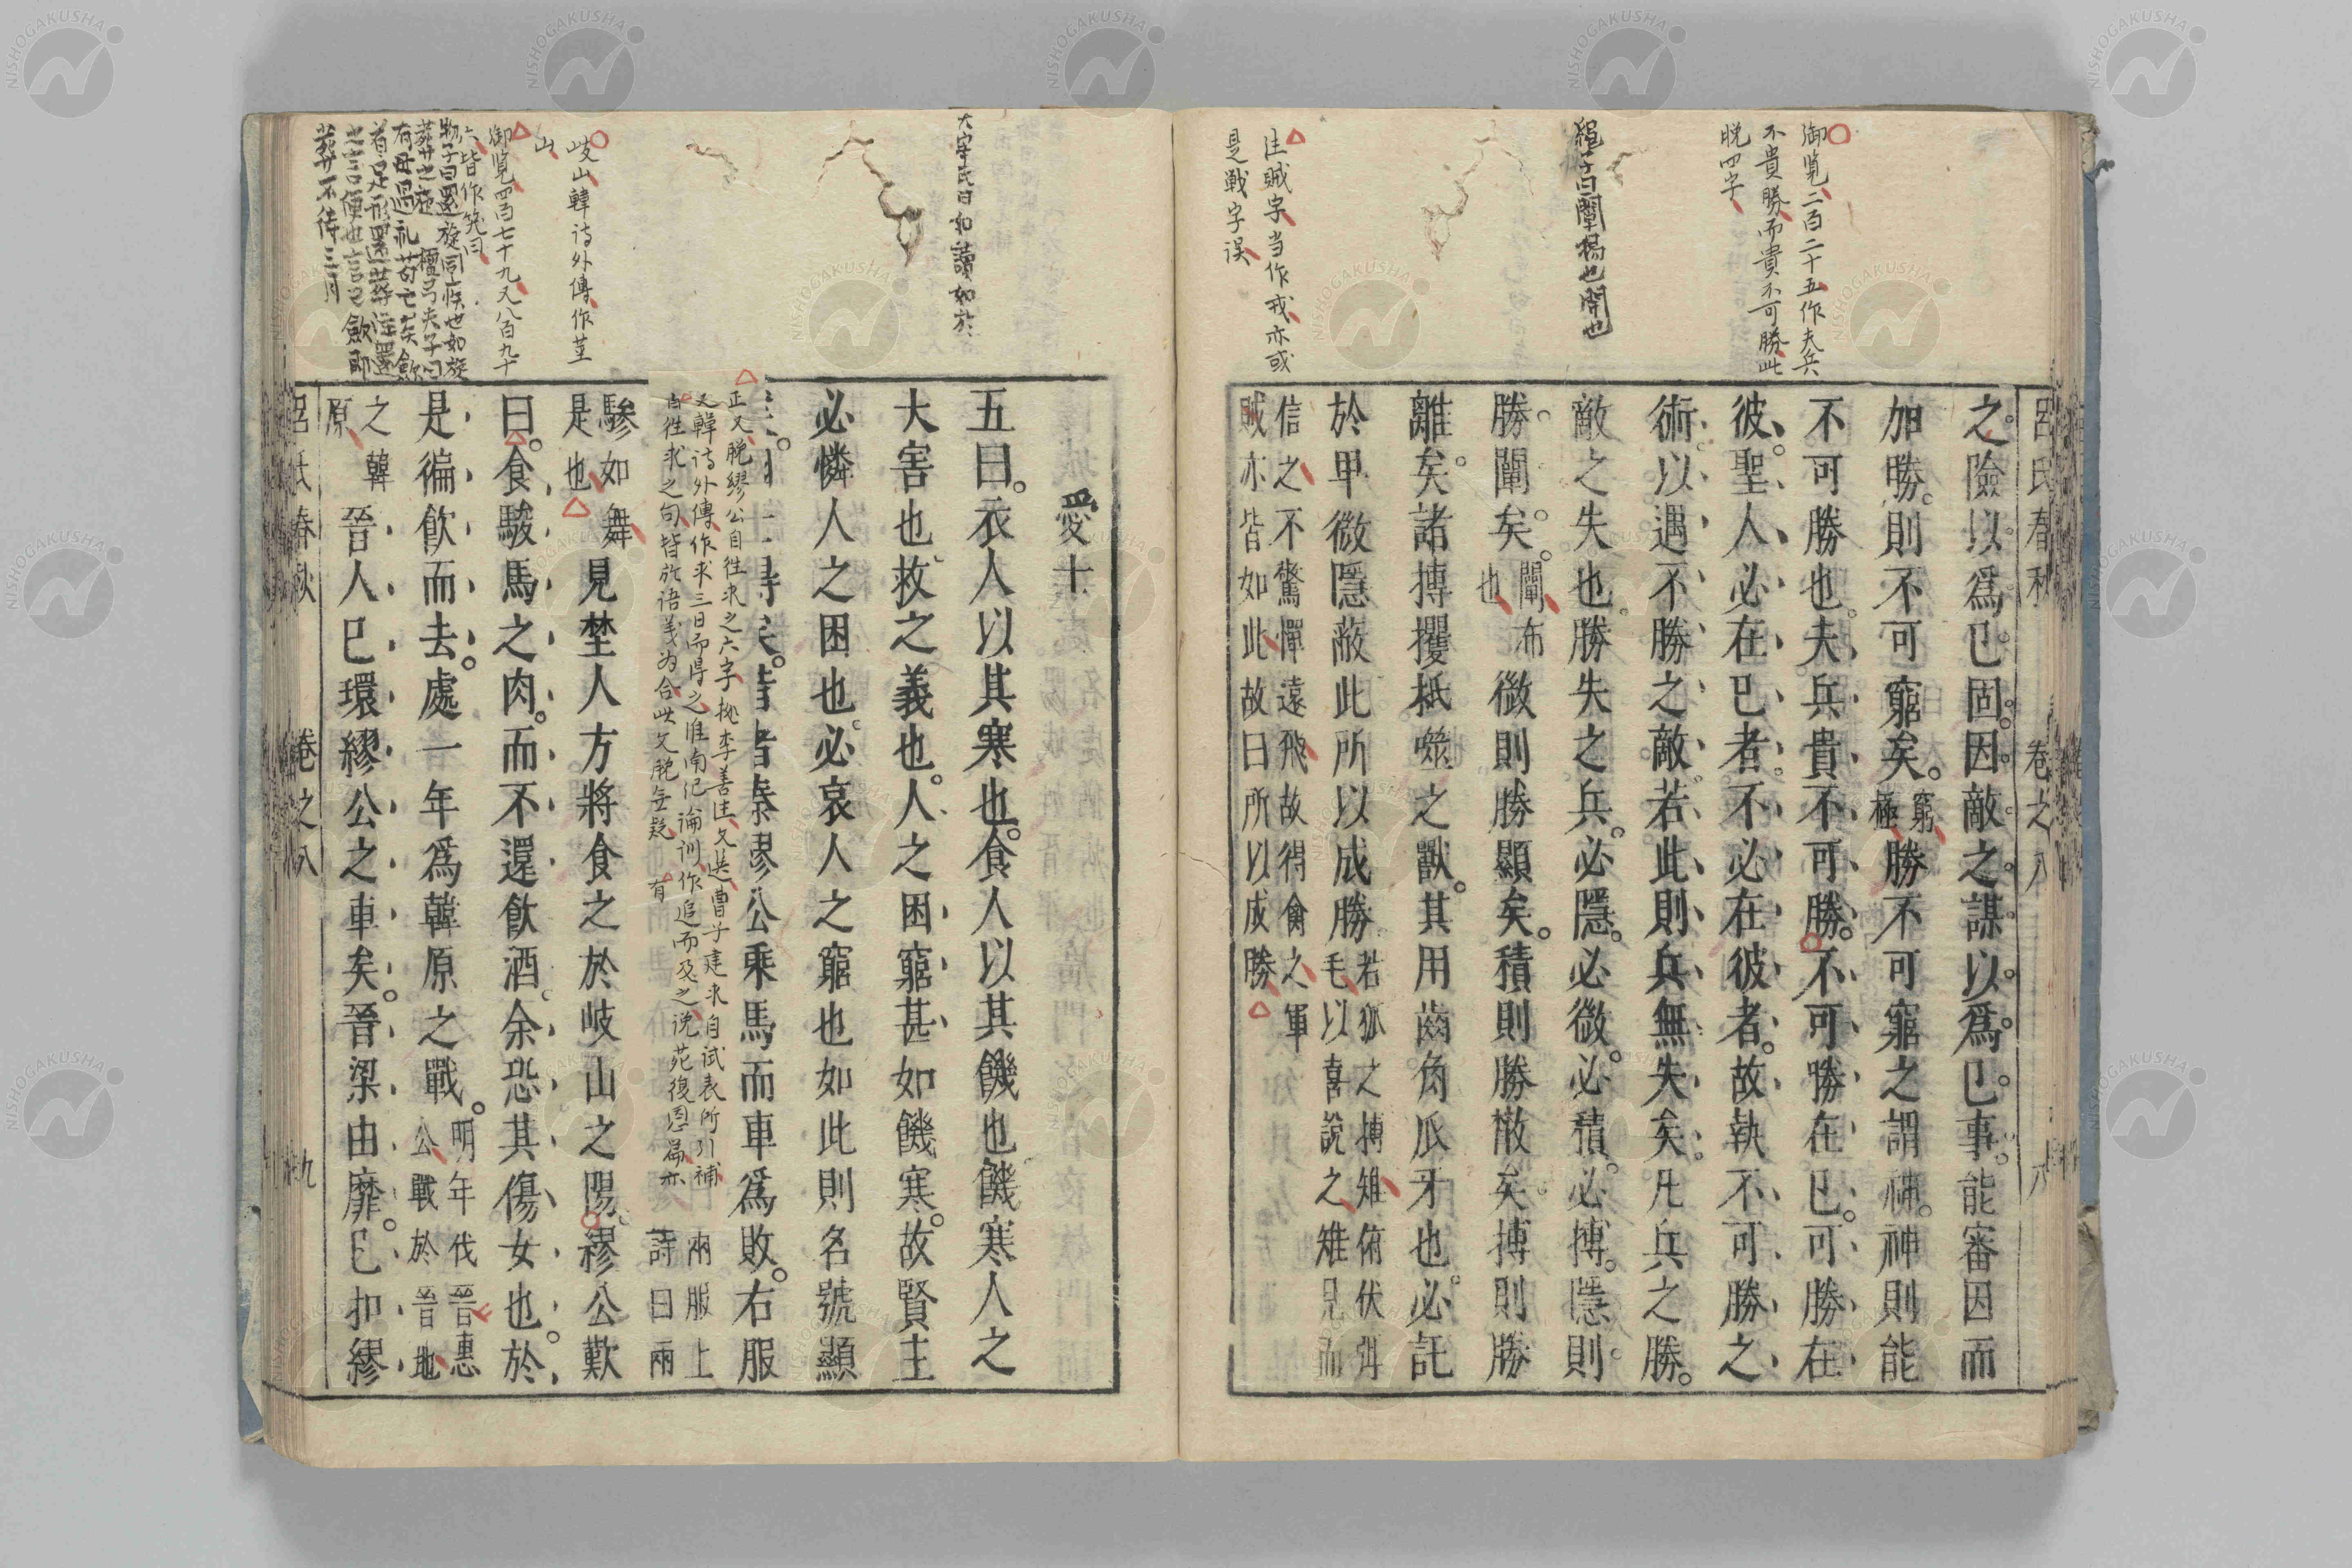 呂氏春秋　卷之八　八
之險以爲己固因敵之謀以爲己事能審因而
加勝則不可窮矣窮極勝不可窮之謂神神則能
不可勝也夫兵貴不可勝不可勝在己可勝在
彼聖人必在己者不必在彼者故執不可勝之
術以遇不勝之敵若此則兵無失矣凡兵之勝
敵之失也勝失之兵必隱必微必積必搏隱則
勝闡矣闡布也微則勝顯矣積則勝散矣搏則勝
離矣諸搏攫柢噬之獸其用齒角爪牙也必託
於甲微隱蔽此所以成勝若狐之搏雉俯伏弭毛以喜說之雉見而
信之不驚憚遠飛故得禽之軍賊亦皆如此故曰所以成勝
御覧二百二十五作夫兵
不貴勝而貴不可勝此
脫四字
繩子曰闡揚也開也
注賊字当作戎亦或
是戦字误
愛士
五曰衣人以其寒也食人以其饑也饑寒人之
大害也救之義也人之困窮甚如饑寒故賢主
必憐人之困也必哀人之窮也如此則名號顯
矣國士得矣昔者秦繆公乘馬而車爲敗右服
兩服上詩曰兩
驂如舞是也見埜人方將食之於岐山之陽繆公歎
曰食駿馬之肉而不還飲酒余恐其傷女也於
是徧飲而去處一年爲韓原之戰明年伐晉惠公戰於晉地
之韓原晉人已環繆公之車矣晉梁由靡已扣繆
呂氏春秋　卷之八　九
正文脫繆公自往求之六字拠李善注文选曹子建求自试表所引補
又韓诗外傳作求三日而得之淮南氾論训作追而及之说苑復恩篇亦有
自往求之句皆於语義为合此文脫無疑
大宰氏曰如讀如於
岐山韓诗外傳作莖
山
御覧四百七十九又八百九十
六皆作笑曰
物子曰還旋同疾也如旋
葬之旋　檀弓夫子曰
有毋過礼苟亡矣斂
首足形還葬注還
之言便也言已斂即
葬不待三月